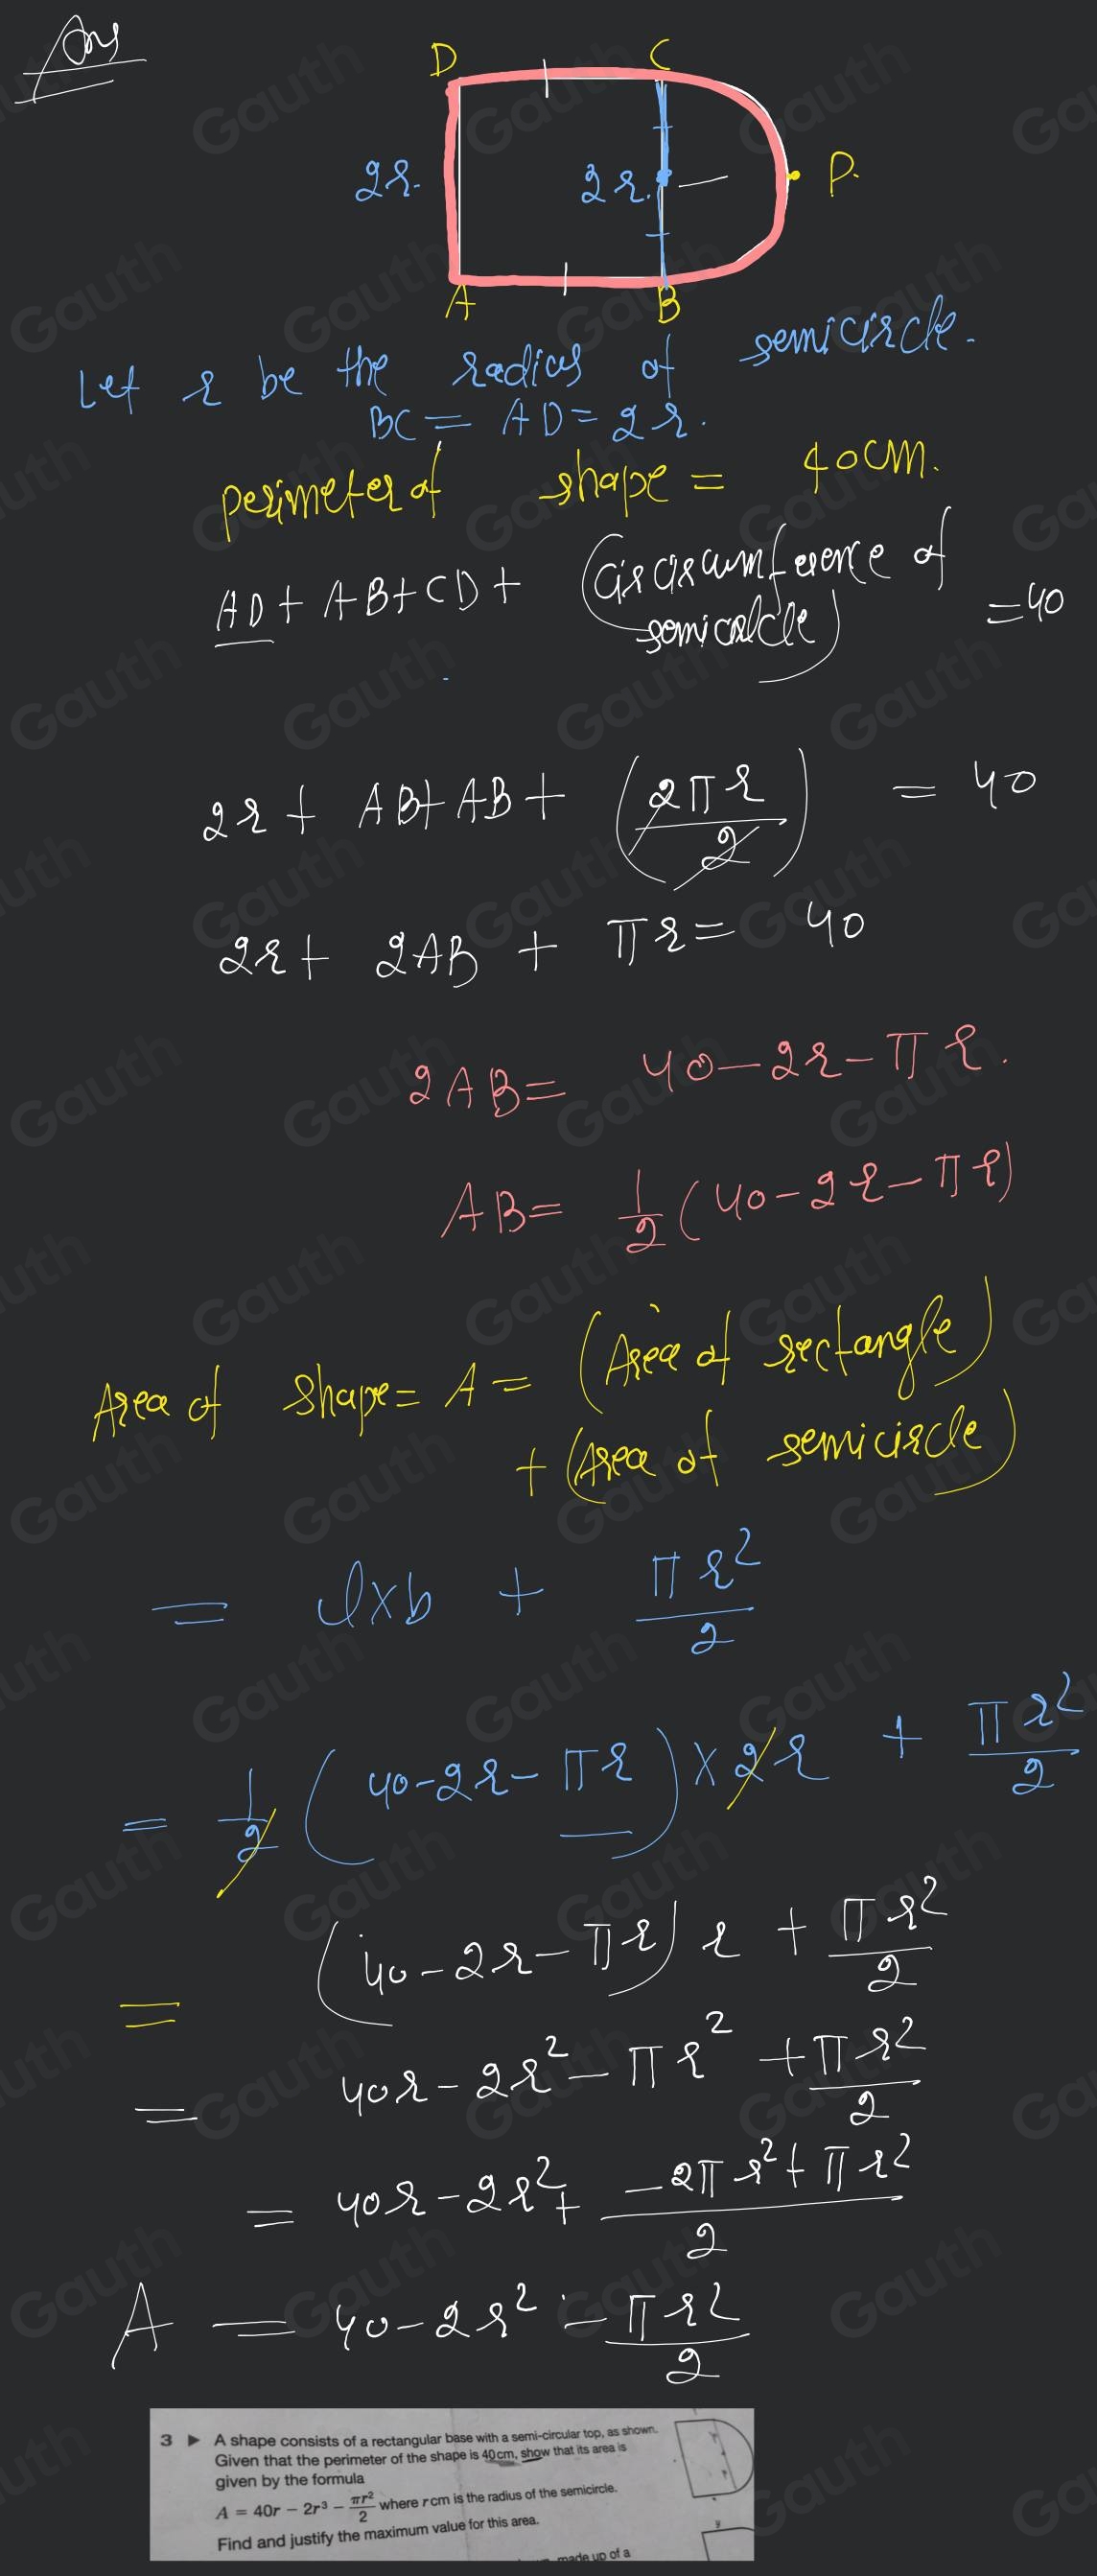 Ans
D C
2r. 2r. P.
A B
Let r be the radius of semicircle.
BC = AD = 2r.
perimeter of shape = 40cm.
AD + AB + CD + (Circumference of semicircle) = 40
2r + AB + AB + (2πr/2) = 40
2r + 2AB + πr = 40
2AB = 40 - 2r - πr.
AB = 1/2 (40 - 2r - πr)
Area of shape = A = (Area of rectangle)
+ (Area of semicircle)
= l×b + πr²/2
= 1/2 (40 - 2r - πr) × 2r + πr²/2
= (40 - 2r - πr) r + πr²/2
= 40r - 2r² - πr² + πr²/2
= 40r - 2r² + (-2πr² + πr²)/2
A = 40 - 2r² - πr²/2
3 ▶ A shape consists of a rectangular base with a semi-circular top, as shown.
Given that the perimeter of the shape is 40cm, show that its area is
given by the formula
A = 40r − 2r³ − πr²/2 where r cm is the radius of the semicircle.
Find and justify the maximum value for this area.
made up of a
Gauth